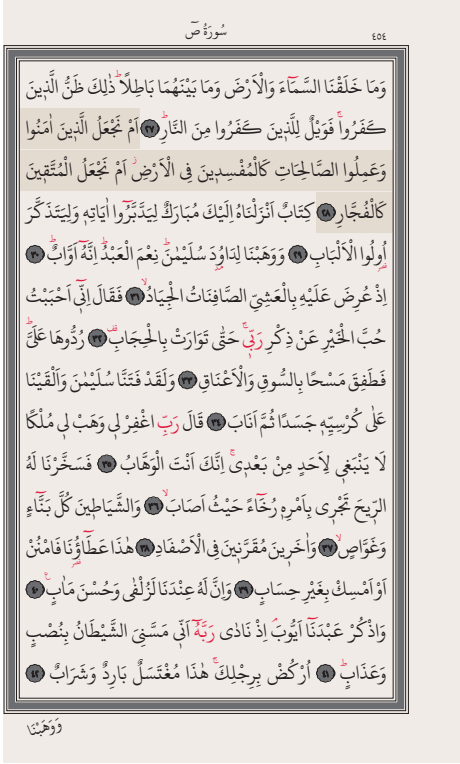 سُورَةُ صٓ
٤٥٤
وَمَا خَلَقْنَا السَّمَٓاءَ وَالْاَرْضَ وَمَا بَيْنَهُمَا بَاطِلًاۜ ذٰلِكَ ظَنُّ الَّذ۪ينَ
كَفَرُواۚ فَوَيْلٌ لِلَّذ۪ينَ كَفَرُوا مِنَ النَّارِۜ ﴿٢٧﴾ اَمْ نَجْعَلُ الَّذ۪ينَ اٰمَنُوا
وَعَمِلُوا الصَّالِحَاتِ كَالْمُفْسِد۪ينَ فِي الْاَرْضِۘ اَمْ نَجْعَلُ الْمُتَّق۪ينَ
كَالْفُجَّارِ ﴿٢٨﴾ كِتَابٌ اَنْزَلْنَاهُ اِلَيْكَ مُبَارَكٌ لِيَدَّبَّرُٓوا اٰيَاتِه۪ وَلِيَتَذَكَّرَ
اُو۬لُوا الْاَلْبَابِ ﴿٢٩﴾ وَوَهَبْنَا لِدَاوُ۫دَ سُلَيْمٰنَۜ نِعْمَ الْعَبْدُۜ اِنَّهُٓ اَوَّابٌۜ ﴿٣٠﴾
اِذْ عُرِضَ عَلَيْهِ بِالْعَشِيِّ الصَّافِنَاتُ الْجِيَادُۙ ﴿٣١﴾ فَقَالَ اِنّ۪ٓي اَحْبَبْتُ
حُبَّ الْخَيْرِ عَنْ ذِكْرِ رَبّ۪يۚ حَتّٰى تَوَارَتْ بِالْحِجَابِ۠ ﴿٣٢﴾ رُدُّوهَا عَلَيَّۜ
فَطَفِقَ مَسْحًا بِالسُّوقِ وَالْاَعْنَاقِ ﴿٣٣﴾ وَلَقَدْ فَتَنَّا سُلَيْمٰنَ وَاَلْقَيْنَا
عَلٰى كُرْسِيِّه۪ جَسَدًا ثُمَّ اَنَابَ ﴿٣٤﴾ قَالَ رَبِّ اغْفِرْ ل۪ي وَهَبْ ل۪ي مُلْكًا
لَا يَنْبَغ۪ي لِاَحَدٍ مِنْ بَعْد۪يۚ اِنَّكَ اَنْتَ الْوَهَّابُ ﴿٣٥﴾ فَسَخَّرْنَا لَهُ
الرّ۪يحَ تَجْر۪ي بِاَمْرِه۪ رُخَٓاءً حَيْثُ اَصَابَۙ ﴿٣٦﴾ وَالشَّيَاط۪ينَ كُلَّ بَنَّٓاءٍ
وَغَوَّاصٍۙ ﴿٣٧﴾ وَاٰخَر۪ينَ مُقَرَّن۪ينَ فِي الْاَصْفَادِ ﴿٣٨﴾ هٰذَا عَطَٓاؤُ۬نَا فَامْنُنْ
اَوْ اَمْسِكْ بِغَيْرِ حِسَابٍ ﴿٣٩﴾ وَاِنَّ لَهُ عِنْدَنَا لَزُلْفٰى وَحُسْنَ مَاٰبٍ۟ ﴿٤٠﴾
وَاذْكُرْ عَبْدَنَٓا اَيُّوبَۢ اِذْ نَادٰى رَبَّهُٓ اَنّ۪ي مَسَّنِيَ الشَّيْطَانُ بِنُصْبٍ
وَعَذَابٍۜ ﴿٤١﴾ اُرْكُضْ بِرِجْلِكَۚ هٰذَا مُغْتَسَلٌ بَارِدٌ وَشَرَابٌ ﴿٤٢﴾
وَوَهَبْنَا